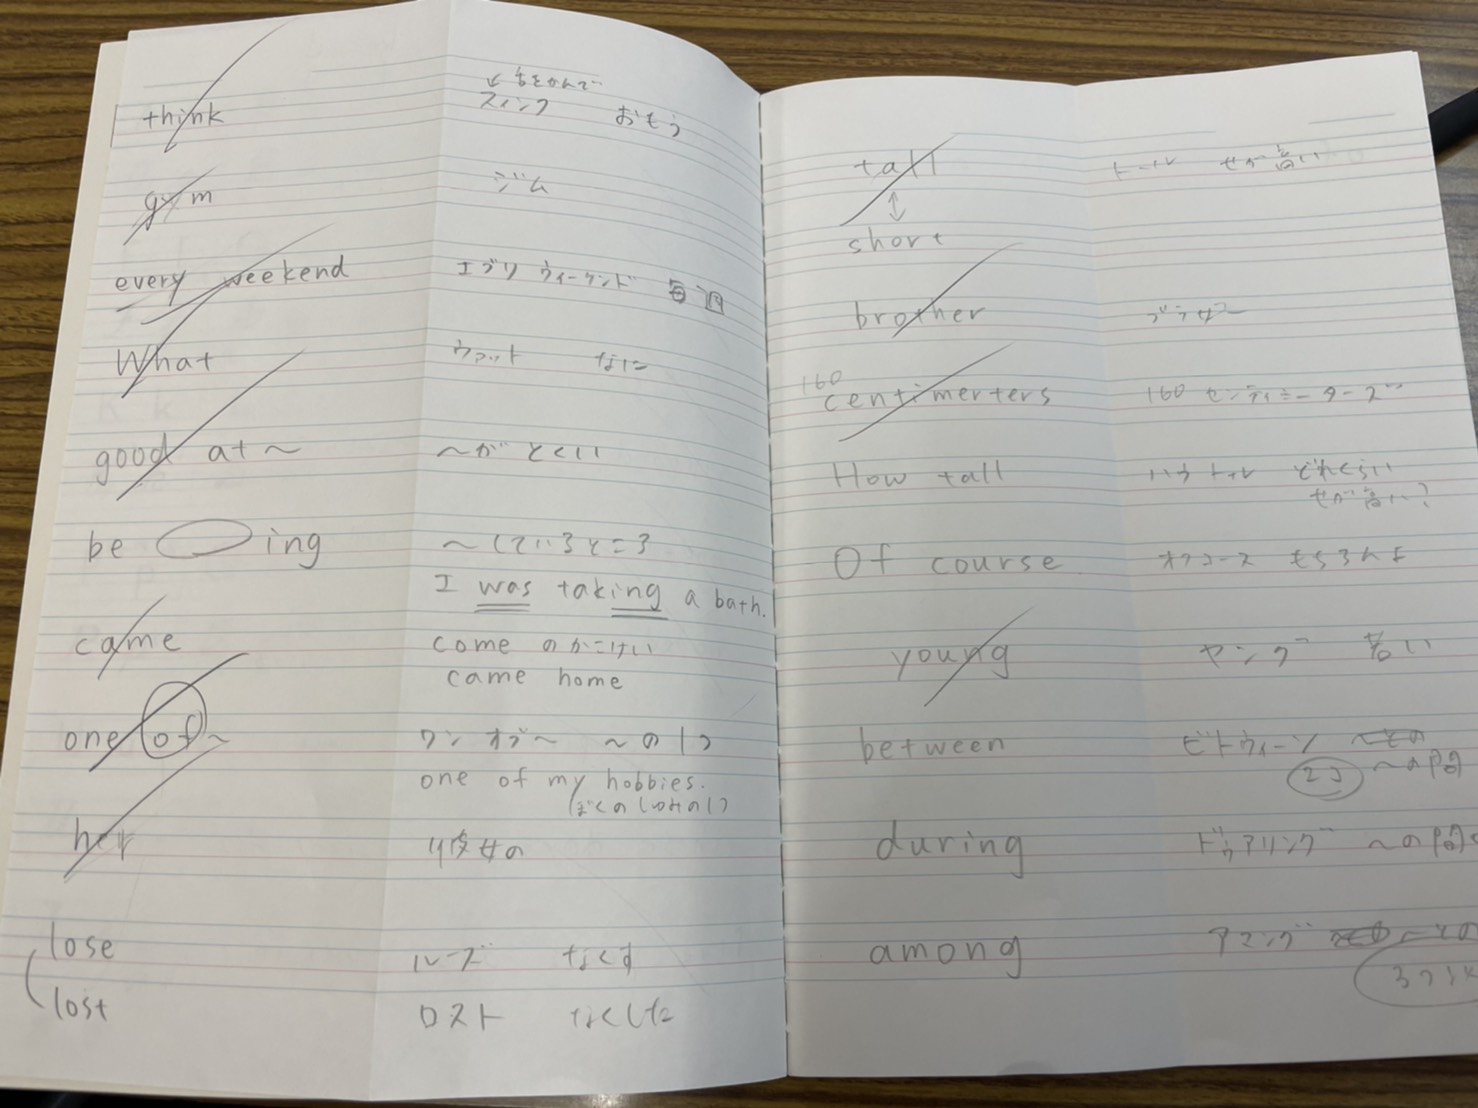 think スィンク おもう
gym ジム
every weekend エブリ ウィークンド 毎週
What ウァット なに
good at ～ ～が とくい
be ing ～しているところ
I was taking a bath.
came come のかこけい
came home
one of ～ ワン オブ～ ～の1つ
one of my hobbies.
ぼくのしゅみの1つ
her 彼女の
lose ルーズ なくす
lost ロスト なくした
tall トール せが高い
↕
short
brother ブラザー
160
centimerters 160 センティミーターズ
How tall ハウ トール どれくらい
せが高い?
Of course オフコース もちろんよ
young ヤング 若い
between ビトウィーン
2つ ～の間
during ドゥアリング ～の間
among アマング